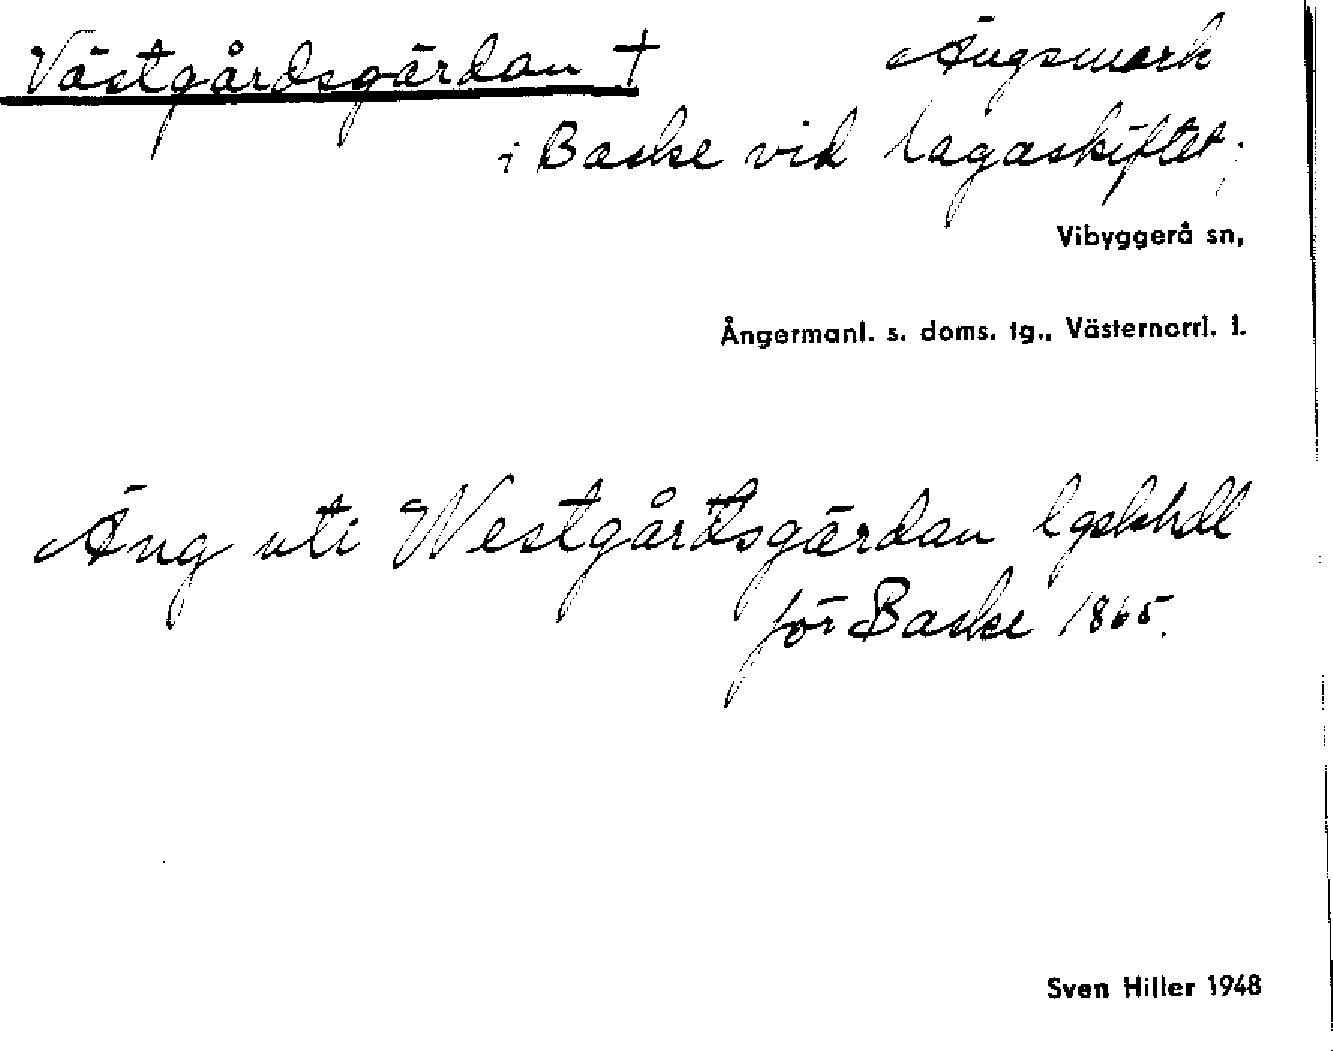 Västgårdsgärdan † Ängsmark
i Baske vid lagaskiftet;
Vibyggerå sn,
Ångermanl. s. doms. tg., Västernorrl. l.
Äng uti Westgårdsgärdan lgskhdl
för Baske 1865.
Sven Hiller 1948